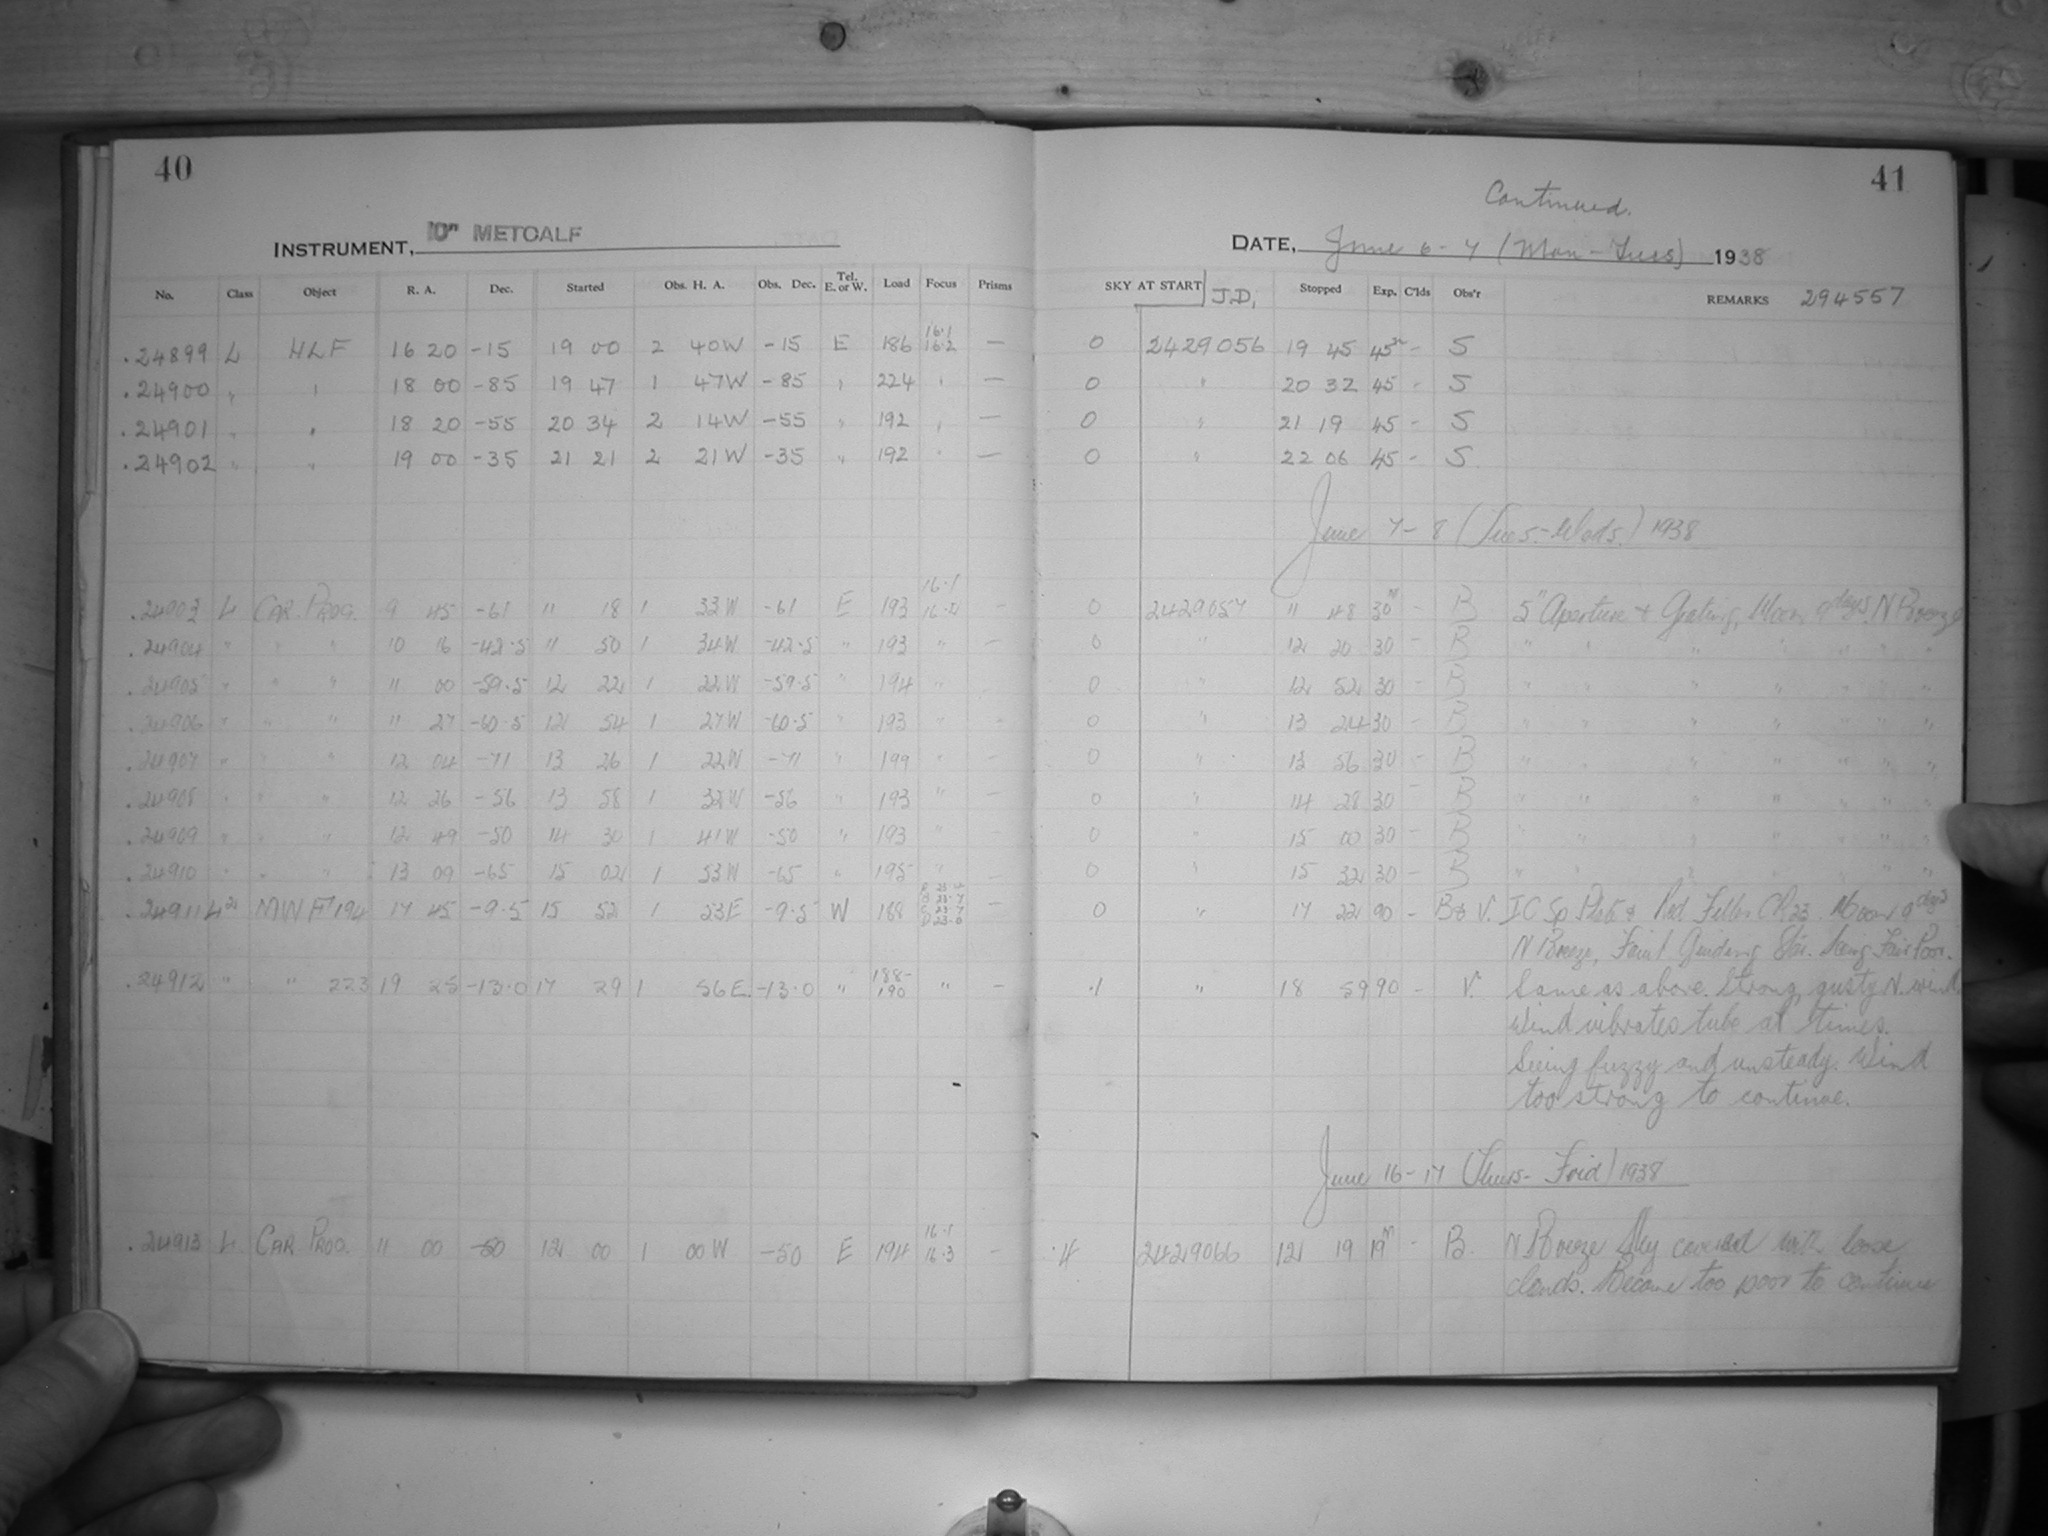 40
INSTRUMENT, 10" METCALF
No. Class Object R. A. Dec. Started Obs. H. A. Obs. Dec. Tel. E. or W. Load Focus Prisms
.24899 L HLF 16 20 -15 19 00 2 40W -15 E 186 16.1 16.2 —
.24900 " " 18 00 -85 19 47 1 47W -85 " 224 " —
.24901 " " 18 20 -55 20 34 2 14W -55 " 192 " —
.24902 " " 19 00 -35 21 21 2 21W -35 " 192 " —
.24903 L CAR. PROG. 9 45 -61 11 18 1 33W -61 E 193 16.1 –
.24904 " " " 10 16 11 50 1 34W " 193 " –
.24905 " " " 11 00 -59.5 12 22 1 22W -59.5 " 194 "
.24906 " " " 11 27 -60.5 12 54 1 27W -60.5 " 193 " –
.24907 " " " 12 04 -71 13 26 1 22W -71 " 199 " –
.24908 " " " 12 26 -56 13 58 1 32W -56 " 193 " –
.24909 " " " 12 49 -50 14 30 1 41W -50 " 193 "
.24910 " " " 13 09 -65 15 02 1 53W -65 " 195 " –
.24911 MWF 194 17 45 -9.5 15 52 1 23E -9.5 W 188 –
.24912 " " 223 19 25 -13.0 17 29 1 56E -13.0 " 188-190 " –
.24913 L CAR PROG. 11 00 -50 12 00 1 00W -50 E 194 16.1 16.3 –
41
Continued.
DATE, June 6-7 (Mon-Tues) 1938
SKY AT START J.D. Stopped Exp. C'lds Obs'r REMARKS 294557
0 2429056 19 45 45m - S
0 " 20 32 45 - S
0 " 21 19 45 - S
0 " 22 06 45 - S
June 7-8 (Tues-Weds.) 1938
0 2429057 11 48 30m - B 5" Aperture & Grating, Moon 9days. N Breeze
0 " 12 20 30 - B " " " " " " "
0 " 12 52 30 - B " " " " " " "
0 " 13 24 30 - B " " " " " " "
0 " 13 56 30 - B " " " " " " "
0 " 14 28 30 - B " " " " " " "
0 " 15 00 30 - B " " " " " " "
0 " 15 32 30 - B " " " " " " "
0 " 17 22 90 - B & V. IC Sp Plate & Red Filter CR23. Moon 9days
N Breeze, Faint Guiding Star. Seeing Fair Poor.
.1 " 18 59 90 - V. Same as above. Strong, gusty N. wind
Wind vibrates tube at times.
Seeing fuzzy and unsteady. Wind
too strong to continue.
June 16-17 (Thurs-Frid) 1938
.4 2429066 12 19 19m - B. N Breeze Sky covered with loose
clouds. Became too poor to continue